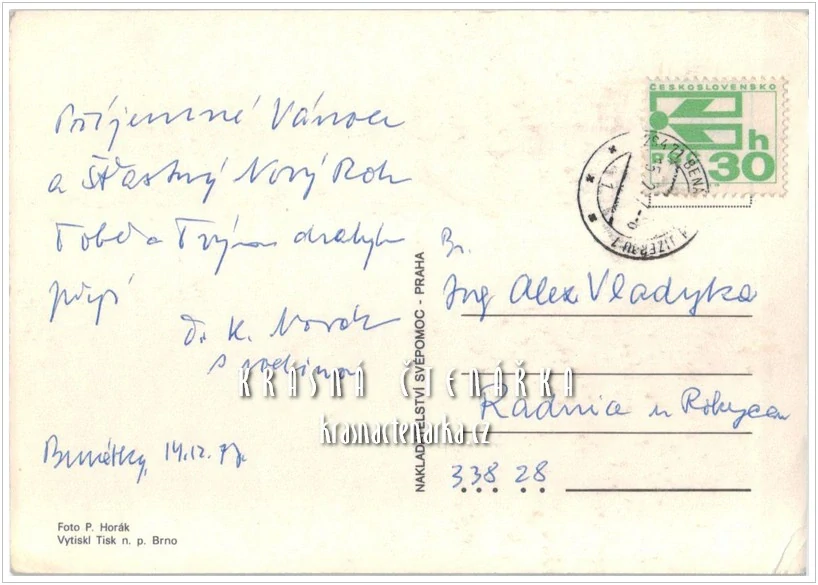 Příjemné Vánoce
a šťastný Nový Rok
Tobě a Tvým drahým
přeje
Dr. K. Novák
s rodinou
14.12.77.
Foto P. Horák
Vytiskl Tisk n. p. Brno
NAKLADATELSTVÍ SVĚPOMOC - PRAHA
ČESKOSLOVENSKO
h
30
294 71 BENÁ
JIZEROU 7
Br.
Ing Alex Vladyka
Radnice u Rokycan
338 28
KRÁSNÁ ČTENÁŘKA
krasnactenarka.cz